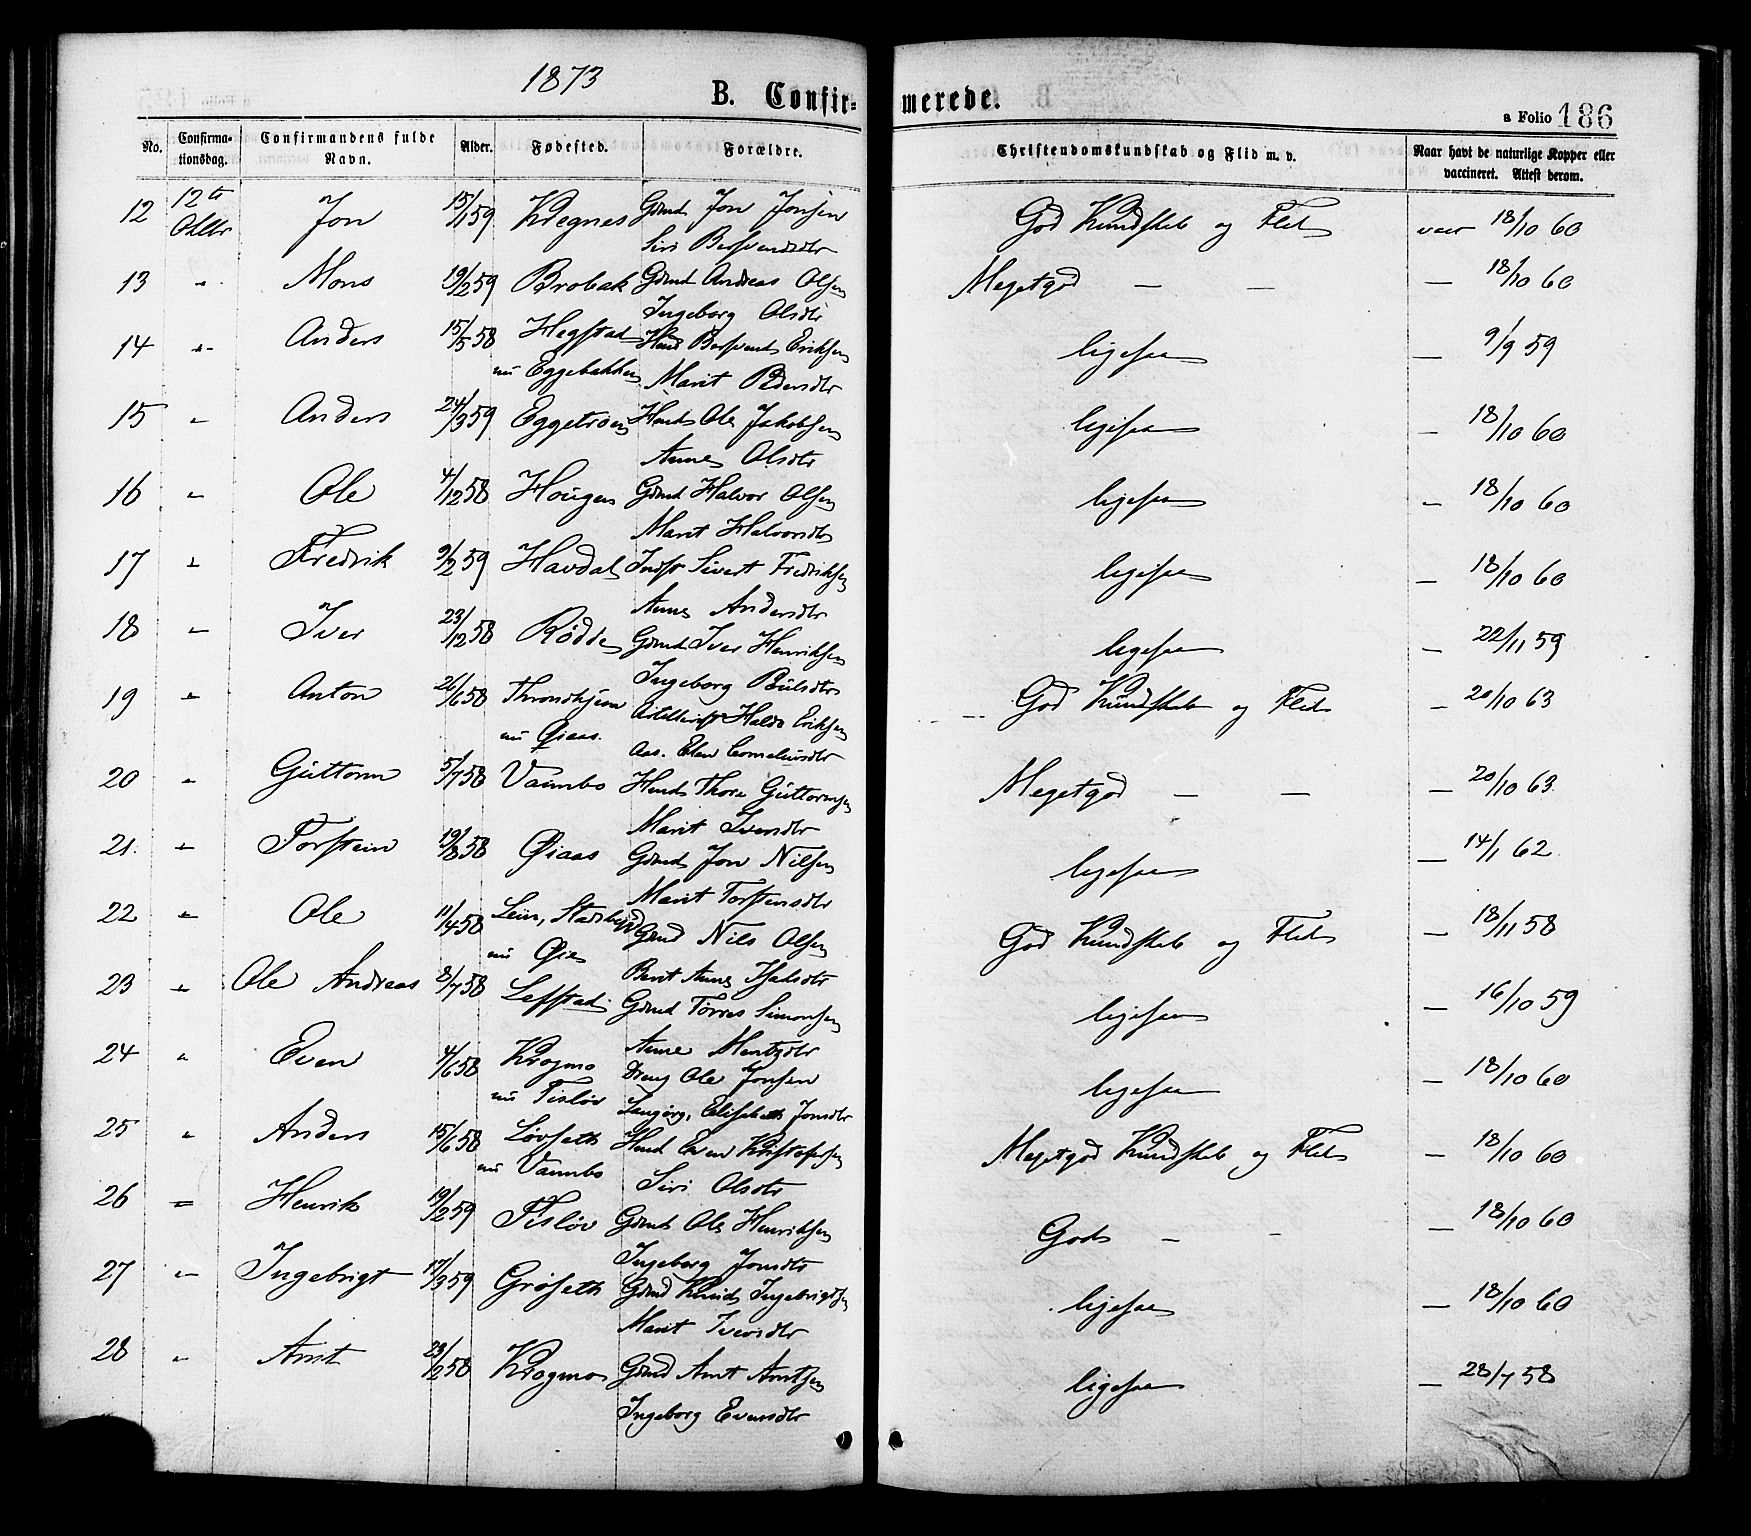 1873
B. Confir- merede.
a Folio 186
No. Confirmationsdag. Confirmandens fulde Navn. Alder. Fødested. Forældre. Christendomskundskab og Flid m. v. Naar havt de naturlige Kopper eller vaccineret. Attest derom.
12 12te Octbr Jon 15/1 59 Kregnes Gdmd Jon Jonsen God Kundskab og Flid vacc 18/10 60
Siri Bersvendsdtr
13 " Mons 19/2 59 Brobak Gdmd Andreas Olsen Megetgod — — — 18/10 60
Ingeborg Olsdtr
14 " Anders 15/5 58 Hegstad Hmd Bersvend Eriksen ligesaa — 9/9 59
nu Eggebakken Marit Pedersdtr
15 " Anders 24/3 59 Eggetrøen Hmd Ole Jakobsen ligesaa — 18/10 60
Anne Olsdtr
16 " Ole 4/12 58 Hougen Gdmd Halvor Olsen ligesaa — 18/10 60
Marit Halvorsdtr
17 " Fredrik 9/2 59 Havdal Indst Sivert Fredriksen ligesaa — 18/10 60
Anne Andersdtr
18 " Iver 23/12 58 Rødde Gdmd Iver Henriksen ligesaa — 22/11 59
Ingeborg Pålsdtr
19 " Anton 26/6 58 Throndhjem Haldo Eriksen God Kundskab og Flid — 20/10 63
nu Øiaas. Aas. Elen Corneliusdtr
20 " Guttorm 5/7 58 Vammbo Hmd Thore Guttormsen Megetgod — — — 20/10 63
Marit Iversdtr
21. " Torstein 19/8 58 Øiaas Gdmd Jon Nilsen ligesaa — 14/1 62
Marit Torstensdtr
22 " Ole 11/4 58 Lein, Stadsbygd Gdmd Nils Olsen God Kundskab og Flid — 18/11 58
nu Øie Berit Anna Isaksdtr
23 " Ole Andreas 8/7 58 Lefstad Gdmd Tørres Simonsen ligesaa — 16/10 59
Anne Mentzdtr
24 " Even 4/6 58 Krogmo Dreng Ole Jonsen ligesaa — 18/10 60
nu Tisløv Elisabeth Jonsdtr
25 " Anders 15/6 58 Løvseth Hmd Even Kristofersen Megetgod Kundskab og Flid — 18/10 60
nu Vammbo Siri Olsdtr
26 " Henrik 19/2 59 Tisløv Gdmd Ole Henriksen God — — — 18/10 60
Ingeborg Jonsdtr
27 " Ingebrigt 17/3 59 Grøseth Gdmd Knud Ingebrigtsen ligesaa — 18/10 60
Marit Iversdtr
28 " Arnt 23/2 58 Krogmo Gdmd Arnt Arntsen ligesaa — 28/7 58
Ingeborg Evensdtr